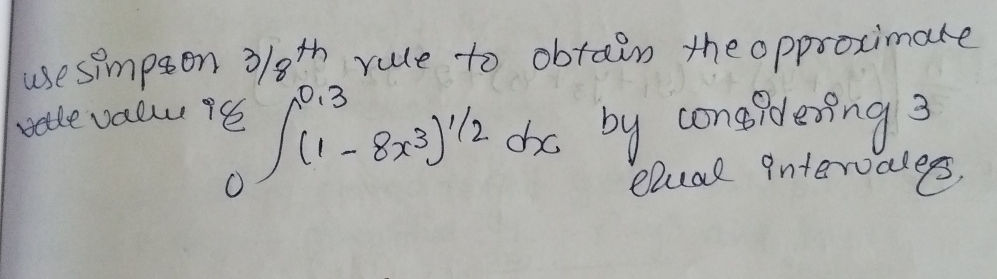 use simpson 3/8th rule to obtain the opproximate
value is ∫₀^0.3 (1 - 8x³)^1/2 dx by considering 3
equal intervales.